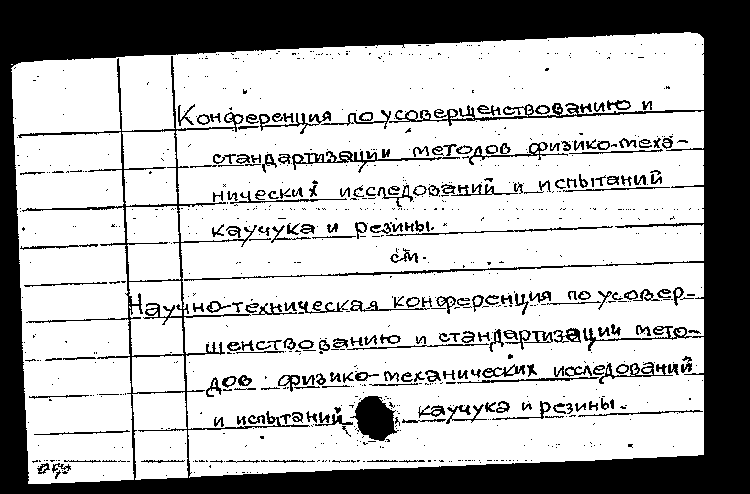 Конференция по усовершенствованию и
стандартизации методов физико-меха-
нических исследований и испытаний
каучука и резины.
см.
Научно-техническая конференция по усовер-
шенствованию и стандартизации мето-
дов физико-механических исследований
и испытаний каучука и резины.